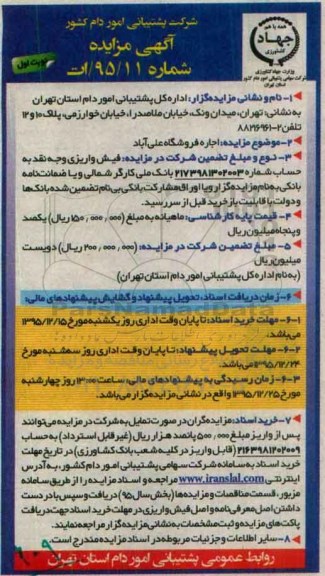 شرکت پشتیبانی امور دام کشور
آگهی مزایده
شماره ۹۵/۱۱/ات
نوبت اول
همه با هم
جهاد
کشاورزی
وزارت جهاد کشاورزی
شرکت سهامی پشتیبانی امور دام کشور
استان تهران
۱- نام و نشانی مزایده‌گزار: اداره کل پشتیبانی امور دام استان تهران
به نشانی: تهران، میدان ونک، خیابان ملاصدرا، خیابان خوارزمی، پلاک ۱۰ و ۱۲
تلفن ۲-۸۸۲۱۶۹۶۱
۲- موضوع مزایده: اجاره فروشگاه علی‌آباد
۳- نوع و مبلغ تضمین شرکت در مزایده: فیش واریزی وجه نقد به
حساب شماره ۲۱۷۳۹۸۱۳۰۲۰۰۳ بانک ملی کارگر شمالی و یا ضمانت‌نامه
بانکی به نام مزایده‌گزار و یا اوراق مشارکت بانکی بی‌نام تضمین شده بانک‌ها
و دولت با قابلیت بازخرید قبل از سررسید.
۴- قیمت پایه کارشناسی: ماهیانه به مبلغ (۱۵۰,۰۰۰,۰۰۰ ریال) یکصد
و پنجاه میلیون ریال
۵- مبلغ تضمین شرکت در مزایده: (۲۰۰,۰۰۰,۰۰۰ ریال) دویست
میلیون ریال
(به نام اداره کل پشتیبانی امور دام استان تهران)
۶- زمان دریافت اسناد، تحویل پیشنهاد و گشایش پیشنهادهای مالی:
۶-۱- مهلت خرید اسناد: تا پایان وقت اداری روز یکشنبه مورخ ۱۳۹۵/۱۲/۱۵
می‌باشد.
۶-۲- مهلت تحویل پیشنهاد: تا پایان وقت اداری روز سه‌شنبه مورخ
۱۳۹۵/۱۲/۲۴ می‌باشد.
۶-۳- زمان رسیدگی به پیشنهادهای مالی: ساعت ۱۳:۰۰ روز چهارشنبه
مورخ ۱۳۹۵/۱۲/۲۵ واقع در نشانی مزایده‌گزار می‌باشد.
۷- خرید اسناد: مزایده‌گران در صورت تمایل به شرکت در مزایده می‌توانند
پس از واریز مبلغ ۵۰۰,۰۰۰ پانصد هزار ریال (غیر قابل استرداد) به حساب
۲۱۶۳۹۸۱۲۰۲۰۰۹ (قابل واریز در کلیه شعب بانک کشاورزی) در تاریخ مهلت
خرید اسناد به سامانه شرکت سهامی پشتیبانی امور دام کشور، به آدرس
اینترنتی www.iranslal.com مراجعه و اسناد مزایده را از طریق سامانه
مزبور، قسمت مناقصات و مزایده‌ها (بخش سال ۹۵) دریافت و سپس با در دست
داشتن اصل معرفی‌نامه و اصل فیش واریزی در مهلت خرید اسناد جهت دریافت
پاکت‌های مزایده و ثبت مشخصات به نشانی مزایده‌گزار مراجعه نمایند.
۸- سایر اطلاعات و جزئیات مربوطه در اسناد مزایده مندرج است.
روابط عمومی پشتیبانی امور دام استان تهران